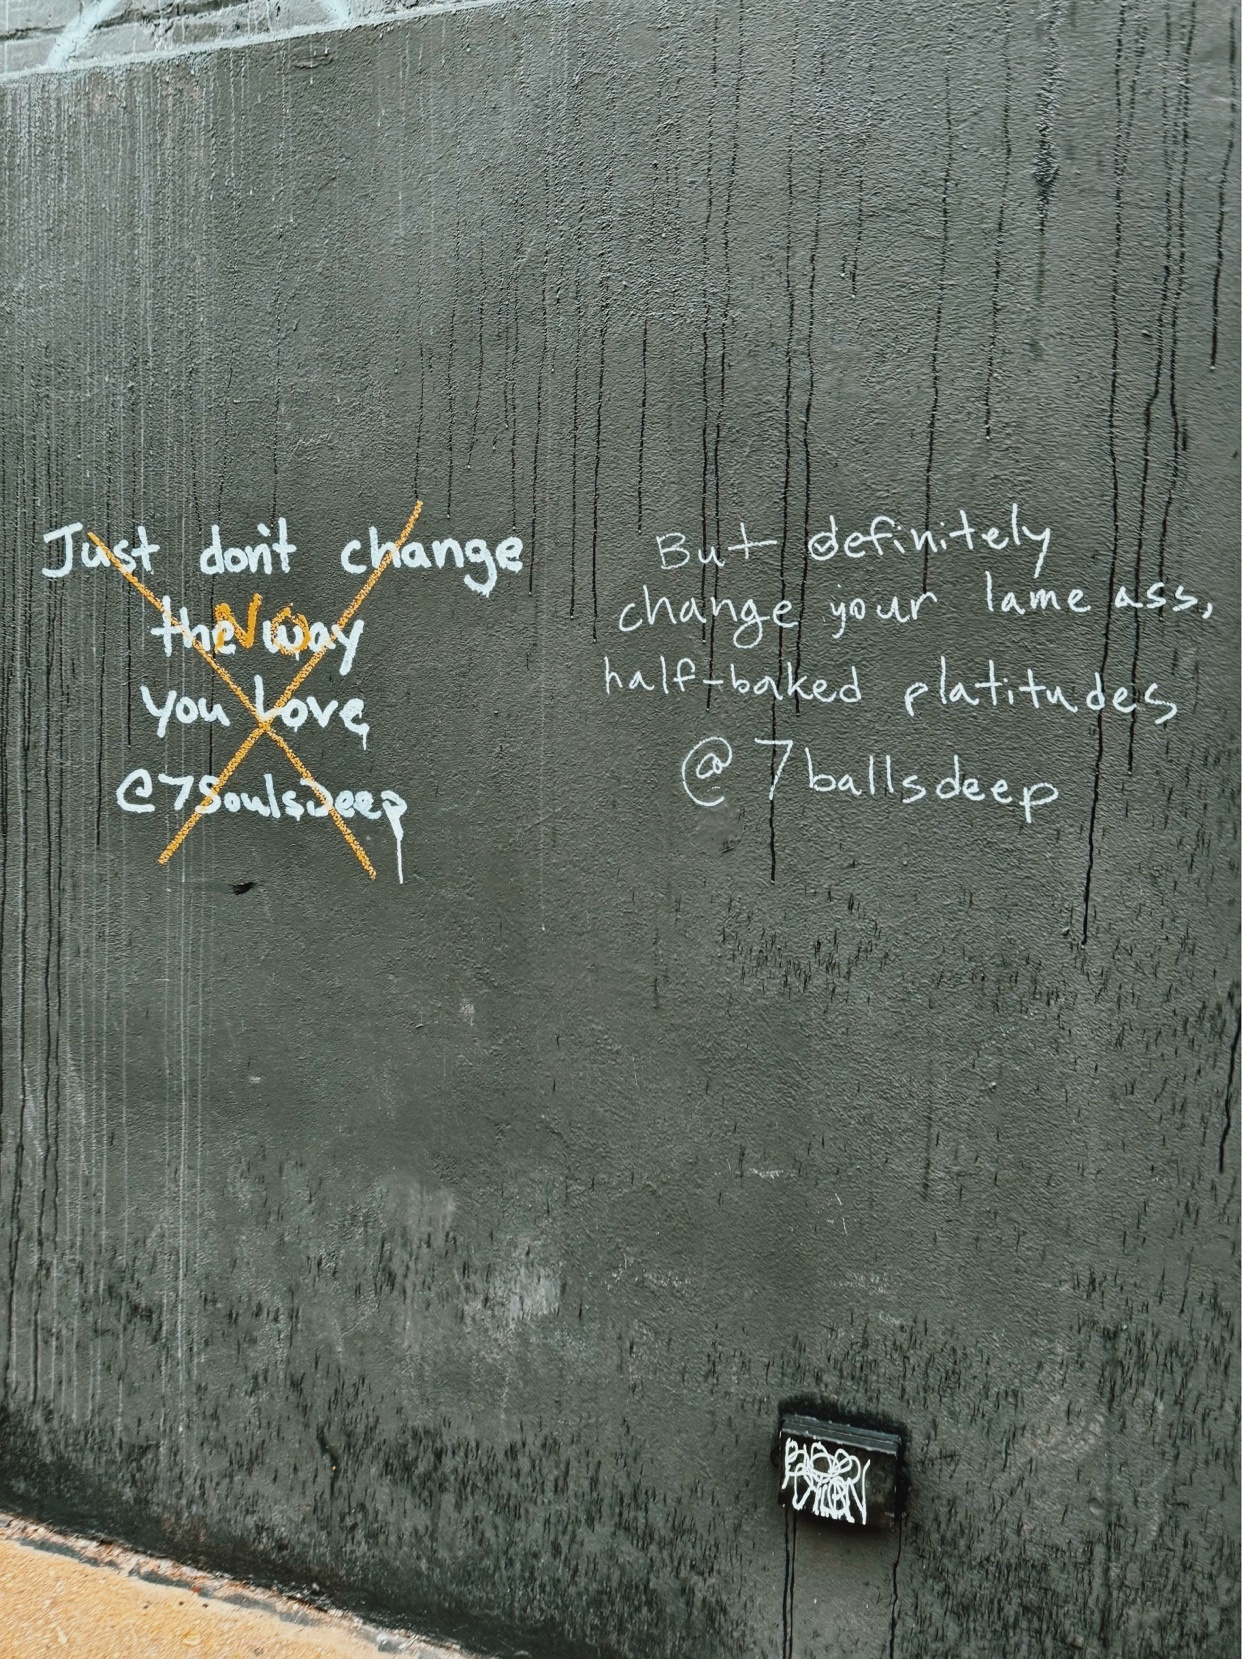 Just don't change
the way
NO
you Love
@7SoulsDeep
But definitely
change your lame ass,
half-baked platitudes
@7ballsdeep